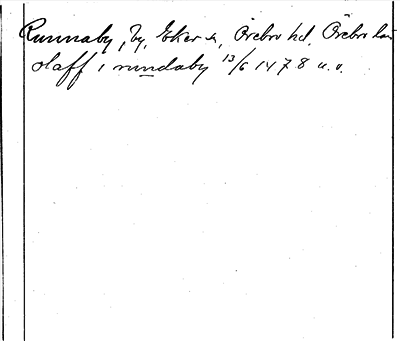 Runnaby, by, Eker s., Örebro hd. Örebro län
olaff i rundaby 13/6 1478 u. o.